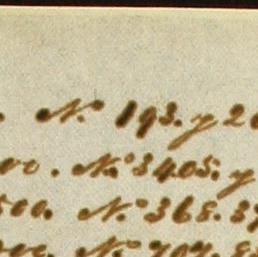 . N.º 193. y 20
vo. N.º 3405. y
500. N.º 368. 37
N.º 707. 8